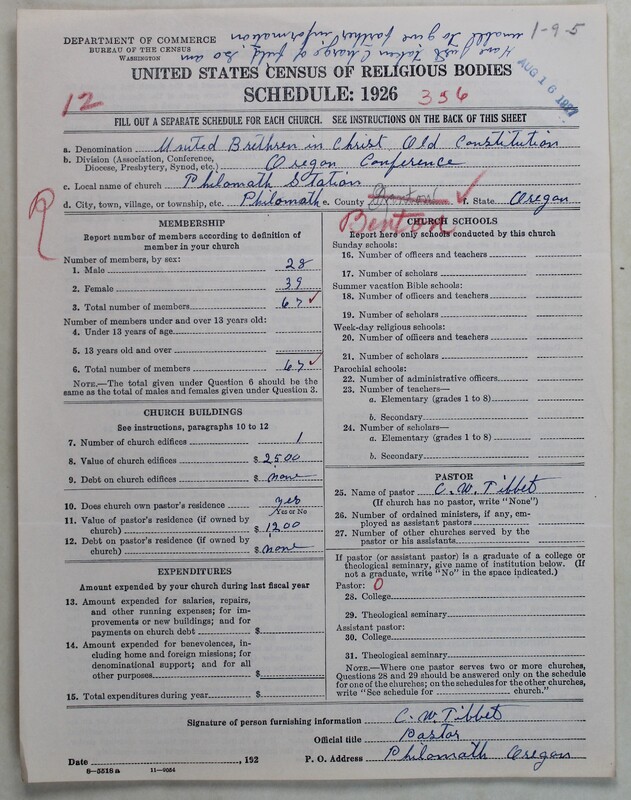 Have just taken Charge of field, so am
unable to give further information
1-9-5
DEPARTMENT OF COMMERCE
BUREAU OF THE CENSUS
WASHINGTON
AUG 16 1927
UNITED STATES CENSUS OF RELIGIOUS BODIES
SCHEDULE: 1926
12
356
FILL OUT A SEPARATE SCHEDULE FOR EACH CHURCH. SEE INSTRUCTIONS ON THE BACK OF THIS SHEET
a. Denomination United Brethren in Christ Old Constitution
b. Division (Association, Conference, Diocese, Presbytery, Synod, etc.) Oregon Conference
c. Local name of church Philomath Station
d. City, town, village, or township, etc. Philomath e. County Benton f. State Oregon
MEMBERSHIP
Report number of members according to definition of
member in your church
Number of members, by sex:
1. Male 28
2. Female 39
3. Total number of members 67
Number of members under and over 13 years old:
4. Under 13 years of age
5. 13 years old and over
6. Total number of members 67
NOTE.—The total given under Question 6 should be
same as the total of males and females given under Question 3.
CHURCH BUILDINGS
See instructions, paragraphs 10 to 12
7. Number of church edifices 1
8. Value of church edifices $ 2500
9. Debt on church edifices $ none
10. Does church own pastor's residence yes
Yes or No
11. Value of pastor's residence (if owned by
church) $ 1200
12. Debt on pastor's residence (if owned by
church) $ none
EXPENDITURES
Amount expended by your church during last fiscal year
13. Amount expended for salaries, repairs,
and other running expenses; for im-
provements or new buildings; and for
payments on church debt $
14. Amount expended for benevolences, in-
cluding home and foreign missions; for
denominational support; and for all
other purposes $
15. Total expenditures during year $
CHURCH SCHOOLS
Report here only schools conducted by this church
Sunday schools:
16. Number of officers and teachers
17. Number of scholars
Summer vacation Bible schools:
18. Number of officers and teachers
19. Number of scholars
Week-day religious schools:
20. Number of officers and teachers
21. Number of scholars
Parochial schools:
22. Number of administrative officers
23. Number of teachers—
a. Elementary (grades 1 to 8)
b. Secondary
24. Number of scholars—
a. Elementary (grades 1 to 8)
b. Secondary
PASTOR
25. Name of pastor C. W. Tibbet
(If church has no pastor, write "None")
26. Number of ordained ministers, if any, em-
ployed as assistant pastors
27. Number of other churches served by the
pastor or his assistants
If pastor (or assistant pastor) is a graduate of a college or
theological seminary, give name of institution below. (If
not a graduate, write "No" in the space indicated.)
Pastor: 0
28. College
29. Theological seminary
Assistant pastor:
30. College
31. Theological seminary
NOTE.—Where one pastor serves two or more churches,
Questions 28 and 29 should be answered only on the schedule
for one of the churches; on the schedules for the other churches,
write "See schedule for church."
Signature of person furnishing information C. W. Tibbet
Official title Pastor
Date , 192 P. O. Address Philomath Oregon
8—5518a 11—9054